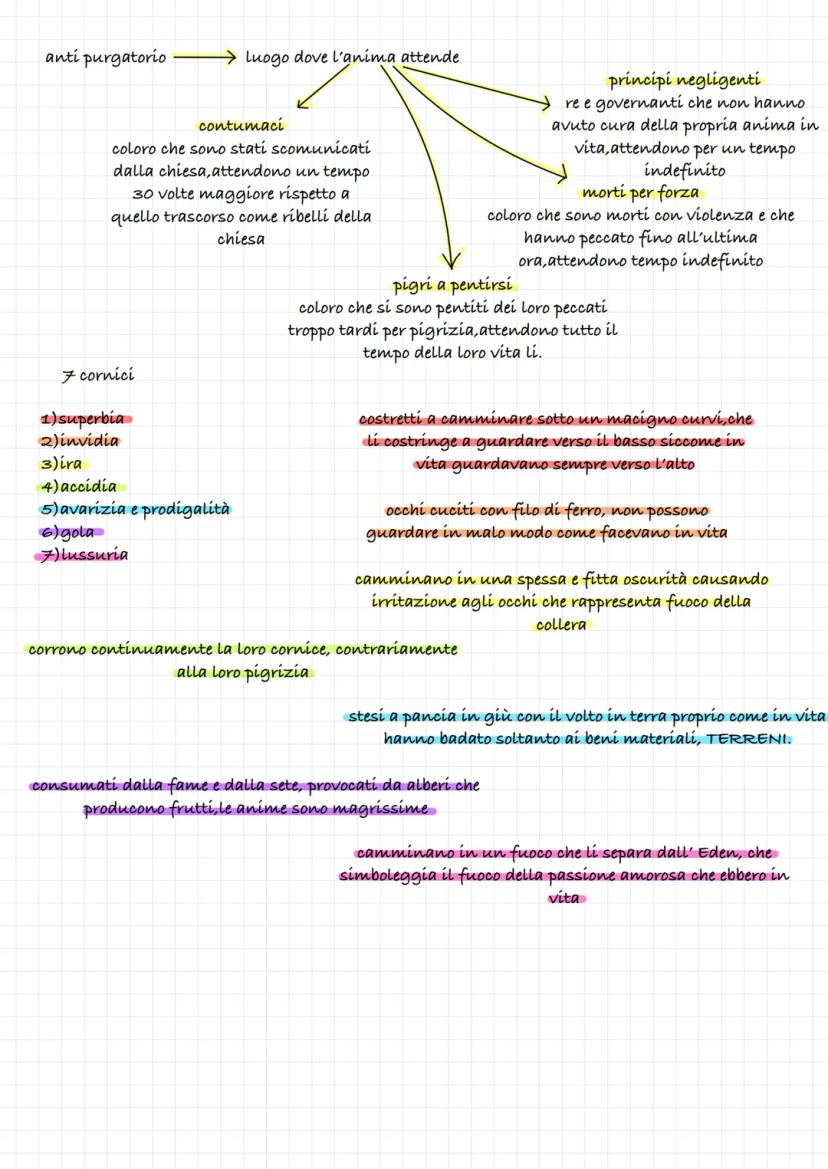 anti purgatorio
luogo dove l'anima attende
contumaci
coloro che sono stati scomunicati
dalla chiesa,attendono un tempo
30 volte maggiore rispetto a
quello trascorso come ribelli della
chiesa
principi negligenti
re e governanti che non hanno
avuto cura della propria anima in
vita,attendono per un tempo
indefinito
morti per forza
coloro che sono morti con violenza e che
hanno peccato fino all'ultima
ora,attendono tempo indefinito
pigri a pentirsi
coloro che si sono pentiti dei loro peccati
troppo tardi per pigrizia,attendono tutto il
tempo della loro vita li.
7 cornici
1)superbia
2)invidia
3)ira
4)accidia
5)avarizia e prodigalità
6)gola
7)lussuria
costretti a camminare sotto un macigno curvi,che
li costringe a guardare verso il basso siccome in
vita guardavano sempre verso l'alto
occhi cuciti con filo di ferro, non possono
guardare in malo modo come facevano in vita
camminano in una spessa e fitta oscurità causando
irritazione agli occhi che rappresenta fuoco della
collera
corrono continuamente la loro cornice, contrariamente
alla loro pigrizia
stesi a pancia in giù con il volto in terra proprio come in vita
hanno badato soltanto ai beni materiali, TERRENI.
consumati dalla fame e dalla sete, provocati da alberi che
producono frutti,le anime sono magrissime
camminano in un fuoco che li separa dall' Eden, che
simboleggia il fuoco della passione amorosa che ebbero in
vita